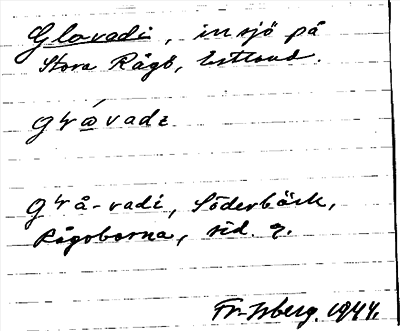 Glovadi, insjö på
Stora Rågö, Estland.
grávadi
grå-vadi, Söderbäck,
Rågöborna, sid. 9.
Fr. Isberg. 1944.